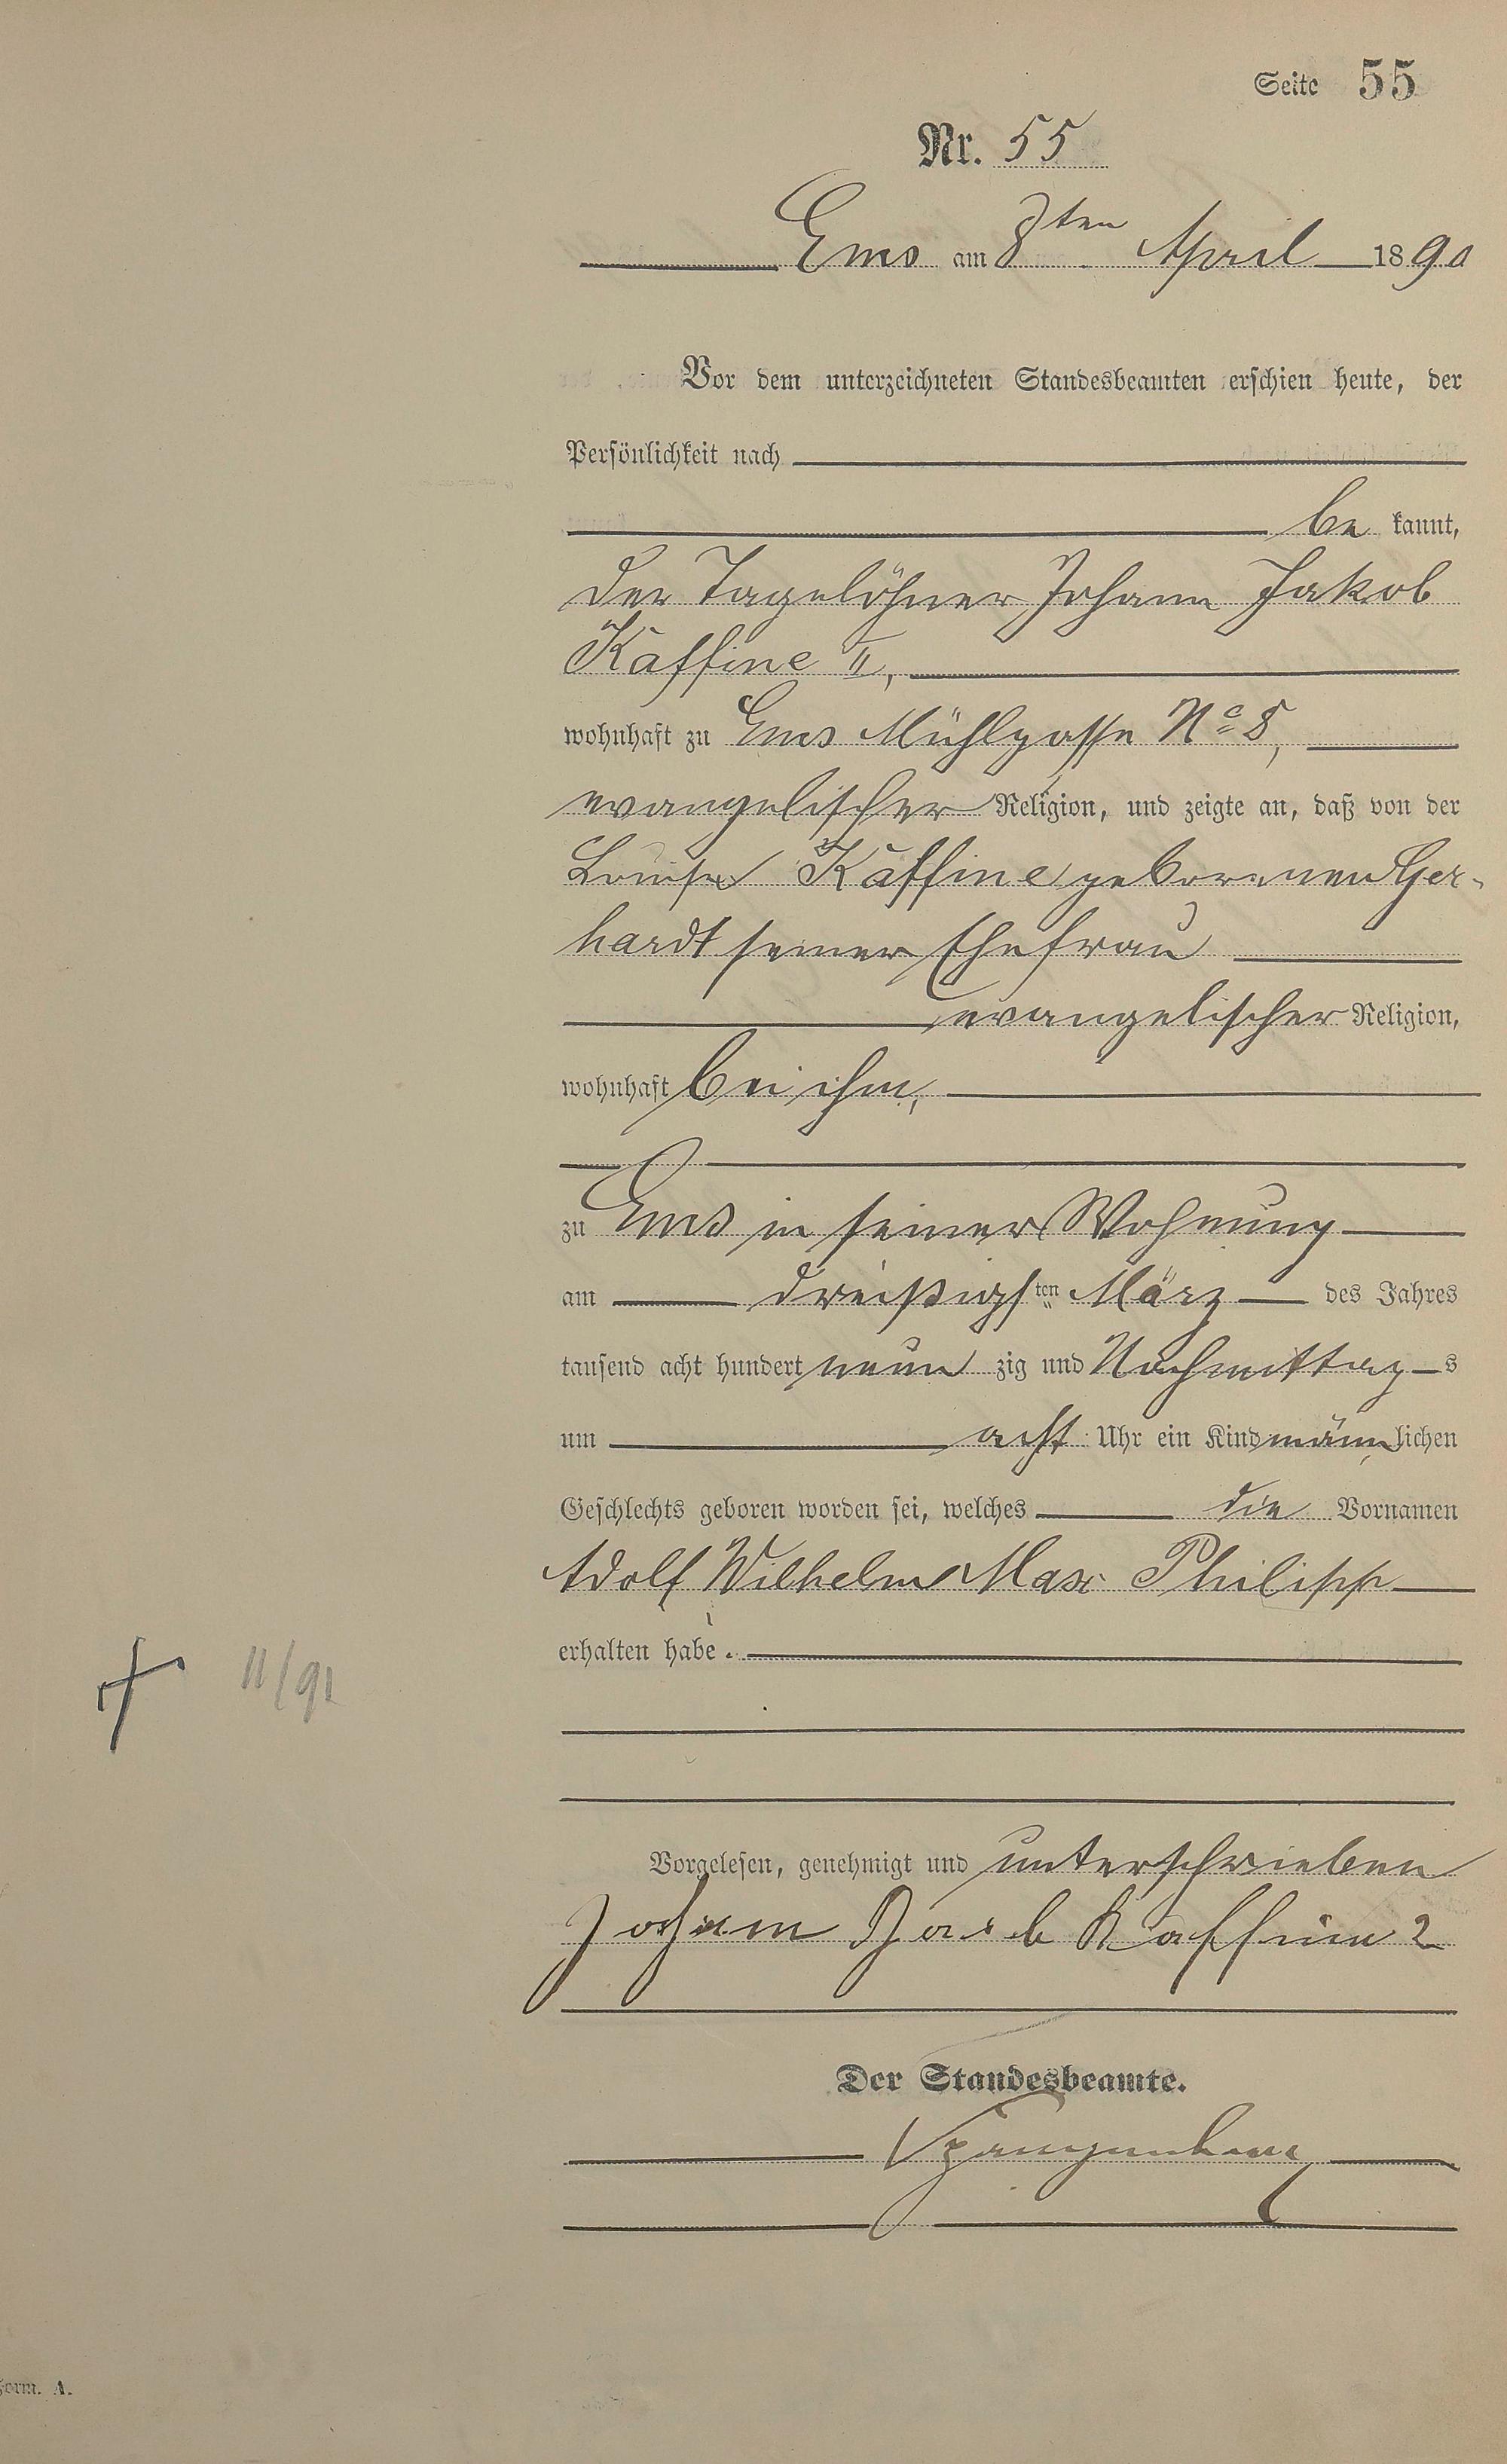 Seite 55
Nr. 55
Ems am 8ten April 1890
Vor dem unterzeichneten Standesbeamten erschien heute, der
Persönlichkeit nach
be kannt,
der Tagelöhner Johann Jakob
Kaffine II,
wohnhaft zu Ems Mühlgasse No 8,
evangelischer Religion, und zeigte an, daß von der
Louise Kaffine geborenen Ger-
hardt seiner Ehefrau
evangelischer Religion,
wohnhaft bei ihm,
zu Ems in seiner Wohnung
am dreißigsten März des Jahres
tausend acht hundert neun zig und Nachmittag s
um acht Uhr ein Kind männlichen
Geschlechts geboren worden sei, welches die Vornamen
Adolf Wilhelm Max Philipp
erhalten habe.
† 11/91
Vorgelesen, genehmigt und unterschrieben
Johann Kaffine 2
Der Standesbeamte.
Form. A.